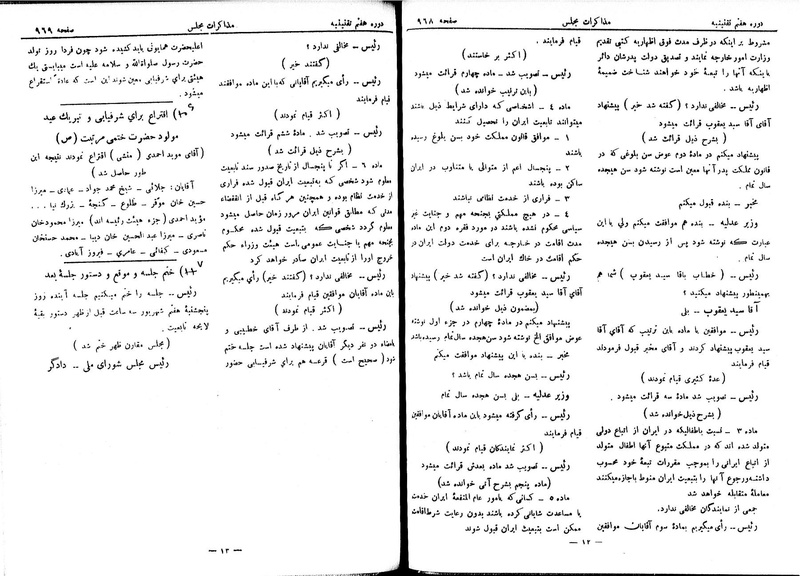 دوره هفتم تقنینیه
مذاکرات مجلس
صفحه ۹۶۸
مشروط بر اینکه در ظرف مدت فوق اظهاریه کتبی تقدیم
وزارت امور خارجه نمایند و تصدیق دولت پدرشان دائر
باینکه آنها را تبعهٔ خود خواهند شناخت ضمیمهٔ
اظهاریه باشد .
رئیس – مخالفی ندارد ؟ (گفته شد خیر) پیشنهاد
آقای آقا سید یعقوب قرائت میشود
(بشرح ذیل قرائت شد)
پیشنهاد میکنم در مادهٔ دوم عوض سن بلوغی که در
قانون مملکت پدر آنها معین است نوشته شود سن هیجده
سال تمام .
مخبر – بنده قبول میکنم
وزیر عدلیه – بنده هم موافقت میکنم ولی با این
عبارت که نوشته شود پس از رسیدن بسن هیجده
سال تمام .
رئیس – ( خطاب باقا سید یعقوب ) شما هم
بهمینطور پیشنهاد میکنید ؟
آقا سید یعقوب – بلی
رئیس – موافقین با ماده باین ترتیب که آقای آقا
سید یعقوب پیشنهاد کردند و آقای مخبر قبول فرمودند
قیام فرمایند
(عدهٔ کثیری قیام نمودند)
رئیس – تصویب شد مادهٔ سه قرائت میشود .
(بشرح ذیل خوانده شد)
ماده ۳ – نسبت باطفالیکه در ایران از اتباع دولی
متولد شده اند که در مملکت متبوع آنها اطفال متولد
از اتباع ایرانی را بموجب مقررات تبعهٔ خود محسوب
داشته و رجوع آنها را بتبعیت ایران منوط باجازه میکنند
معاملهٔ متقابله خواهد شد
جمعی از نمایندگان مخالفی ندارد .
رئیس – رأی میگیریم بمادهٔ سوم آقایان موافقین
قیام فرمایند .
(اکثر بر خاستند)
رئیس – تصویب شد – ماده چهارم قرائت میشود
(باین ترتیب خوانده شد)
ماده ٤ – اشخاصی که دارای شرایط ذیل باشند
میتوانند تابعیت ایران را تحصیل کنند
۱ – موافق قانون مملکت خود بسن بلوغ رسیده
باشند
۲ – پنجسال اعم از متوالی یا متناوب در ایران
ساکن بوده باشند
۳ – فراری از خدمت نظامی نباشند
٤ – در هیچ مملکتی بجنحه مهم و جنایت غیر
سیاسی محکوم نشده باشند در مورد فقره دوم این ماده
مدت اقامت در خارجه برای خدمت دولت ایران در
حکم اقامت در خاک ایران است
رئیس – مخالفی ندارد ؟ (گفته شد خیر) پیشنهاد
آقای آقا سید یعقوب قرائت میشود
(بمضمون ذیل خوانده شد)
پیشنهاد میکنم در مادهٔ چهارم در جزء اول نوشته
عوض موافق الخ نوشته شود سن هجده سال تمام رسیده باشد
مخبر – بنده با این پیشنهاد موافقت میکنم
رئیس – بسن هجده سال تمام باشد ؟
وزیر عدلیه – بلی بسن هجده سال تمام
رئیس – رأی گرفته میشود باین ماده آقایان موافقین
قیام فرمایند
(اکثر نمایندگان قیام نمودند)
رئیس – تصویب شد ماده بعدش قرائت میشود
(ماده پنجم بشرح آتی خوانده شد)
ماده ٥ – کسانی که بامور عام المنفعهٔ ایران خدمت
یا مساعدت شایانی کرده باشند بدون رعایت شرط اقامت
ممکن است بتبعیت ایران قبول شوند
– ۱۲ –
دوره هفتم تقنینیه
مذاکرات مجلس
صفحه ۹۶۹
رئیس – مخالفی ندارد ؟
(گفتند خیر)
رئیس – رأی میگیریم آقایانی که با این ماده موافقند
قیام فرمایند
(اکثر قیام نمودند)
رئیس – تصویب شد . مادهٔ ششم قرائت میشود
(بشرح ذیل قرائت شد)
ماده ٦ – اگر تا پنجسال از تاریخ صدور سند تابعیت
معلوم شود شخصی که بتبعیت ایران قبول شده فراری
از خدمت نظام بوده و همچنین هر گاه قبل از انقضاء
مدتی که مطابق قوانین ایران مرور زمان حاصل میشود
معلوم گردد شخصی که بتبعیت قبول شده محکوم
بجنحه مهم یا جنایت عمومی است هیئت وزراء حکم
خروج اورا از تابعیت ایران صادر خواهد کرد
رئیس – مخالفی ندارد ؟ (گفتند خیر) رأی میگیریم
باین ماده آقایان موافقین قیام فرمایند
(اکثر قیام نمودند)
رئیس – تصویب شد . از طرف آقای خطیبی و
بامضاء دو نفر دیگر آقایان پیشنهاد شده است جلسه ختم
شود (صحیح است) قرعه هم برای شرفیابی حضور
اعلیحضرت همایونی باید کشیده شود چون فردا روز تولد
حضرت رسول صلوةالله و سلامه علیه است میبایستی یک
هیئتی برای شرفیابی معین شوند این است که عادةً استقراع
میشود .
٦ – اقتراع برای شرفیابی و تبریک عید
مولود حضرت ختمی مرتبت (ص)
(آقای مؤید احمدی (منشی) اقتراع نمودند نتیجه این
طور حاصل شد)
آقایان : جلائی – شیخ محمد جواد – عمادی – میرزا
حسن خان موقر – طلوع – کنجهٔ – بزرگ نیا ...
مؤید احمدی (جزء هیئت رئیسه اند) میرزا محمودخان
ناصری – میرزا عبدالحسین خان دیبا – محمد حسنخان
مسعودی – کفائی – عامری – فیروز آبادی .
۷ – ختم جلسه و موقع و دستور جلسهٔ بعد
رئیس – جلسه را ختم میکنیم جلسه آینده روز
پنجشنبهٔ هفتم شهریور سه ساعت قبل از ظهر دستور بقیهٔ
لایحه تابعیت .
(مجلس مقارن ظهر ختم شد)
رئیس مجلس شورای ملی – دادگر
– ۱۳ –